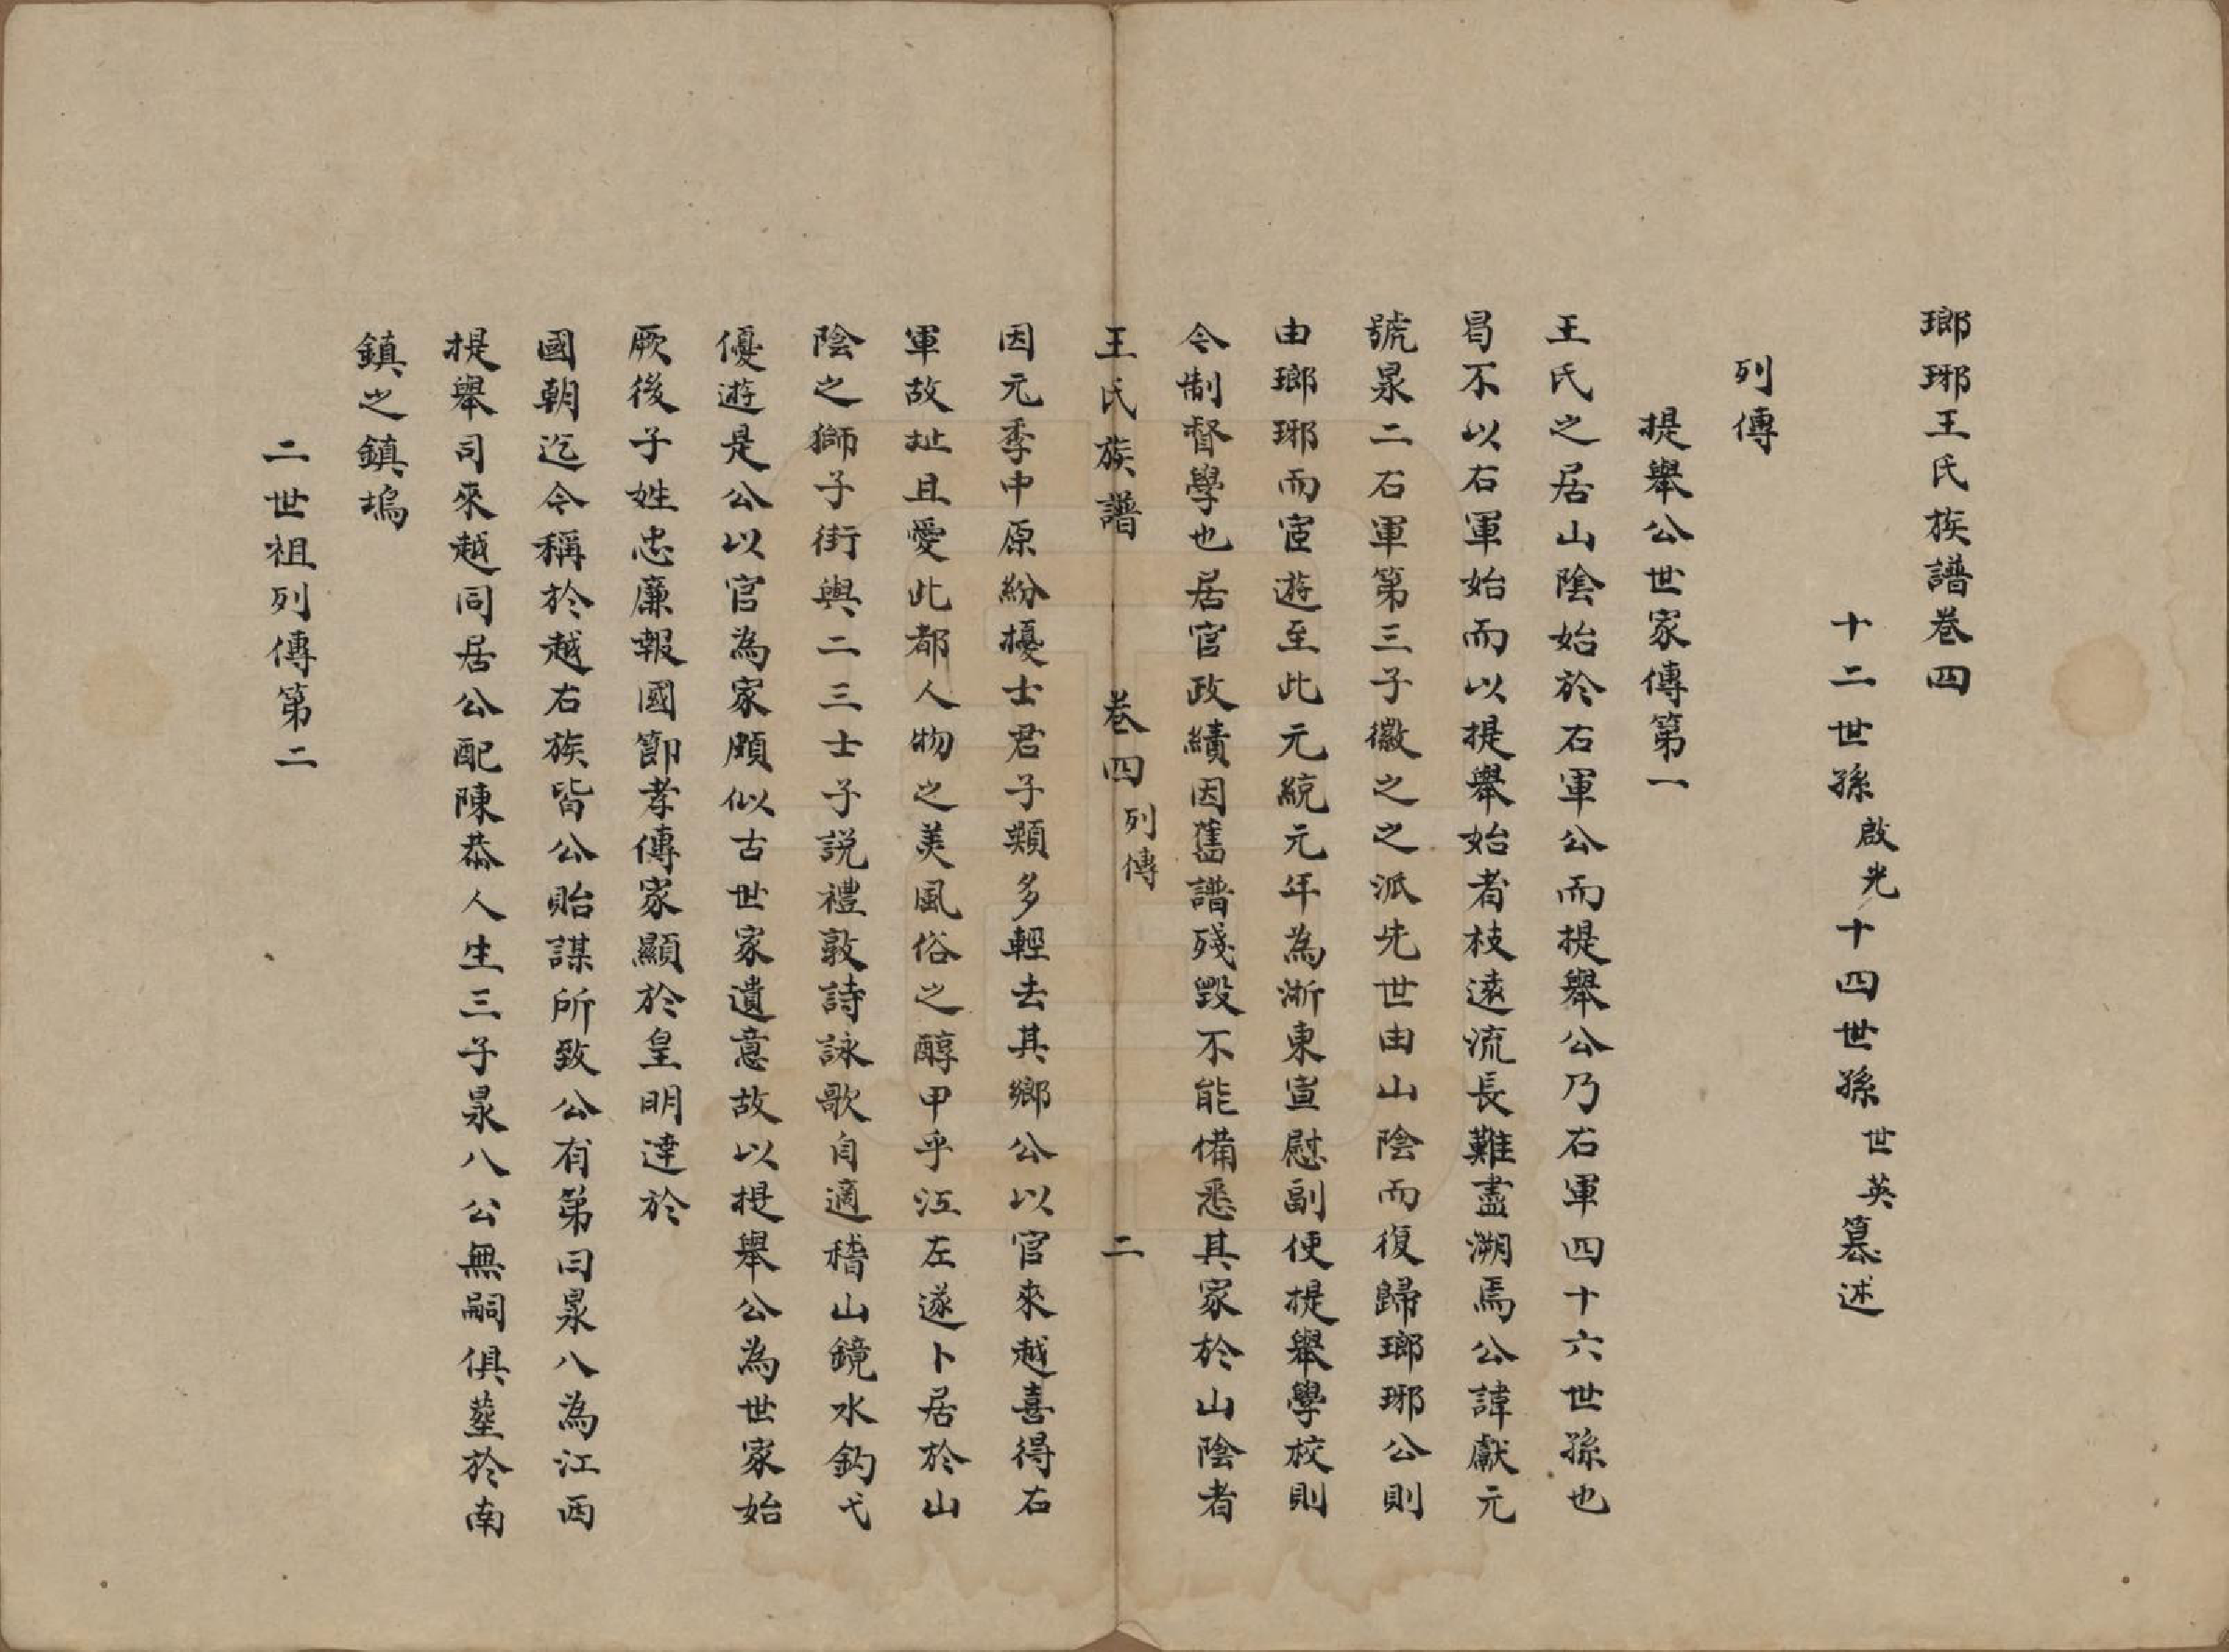 瑯琊王氏族譜卷四
十二世孫啟光十四世孫世英纂述
列傳
提舉公世家傳第一
王氏之居山陰始於右軍公而提舉公乃右軍四十六世孫也
曷不以右軍始而以提舉始者枝遠流長難盡溯焉公諱獻元
號泉二右軍第三子徽之之派先世由山陰而復歸瑯琊公則
由瑯琊而宦遊至此元統元年為浙東宣慰副使提舉學校則
今制督學也居官政績因舊譜殘毀不能備悉其家於山陰者
王氏族譜 卷四 列傳 二
因元季中原紛擾士君子類多輕去其鄉公以官來越喜得右
軍故址且愛此都人物之美風俗之醇甲乎江左遂卜居於山
陰之獅子街與二三士子説禮敦詩詠歌自適稽山鏡水釣弋
優遊是公以官為家頗似古世家遺意故以提舉公為世家始
厥後子姓忠廉報國節孝傳家顯於皇明達於
國朝迄今稱於越右族皆公貽謀所致公有弟曰泉八為江西
提舉司來越同居公配陳恭人生三子泉八公無嗣俱塟於南
鎮之鎮塢
二世祖列傳第二